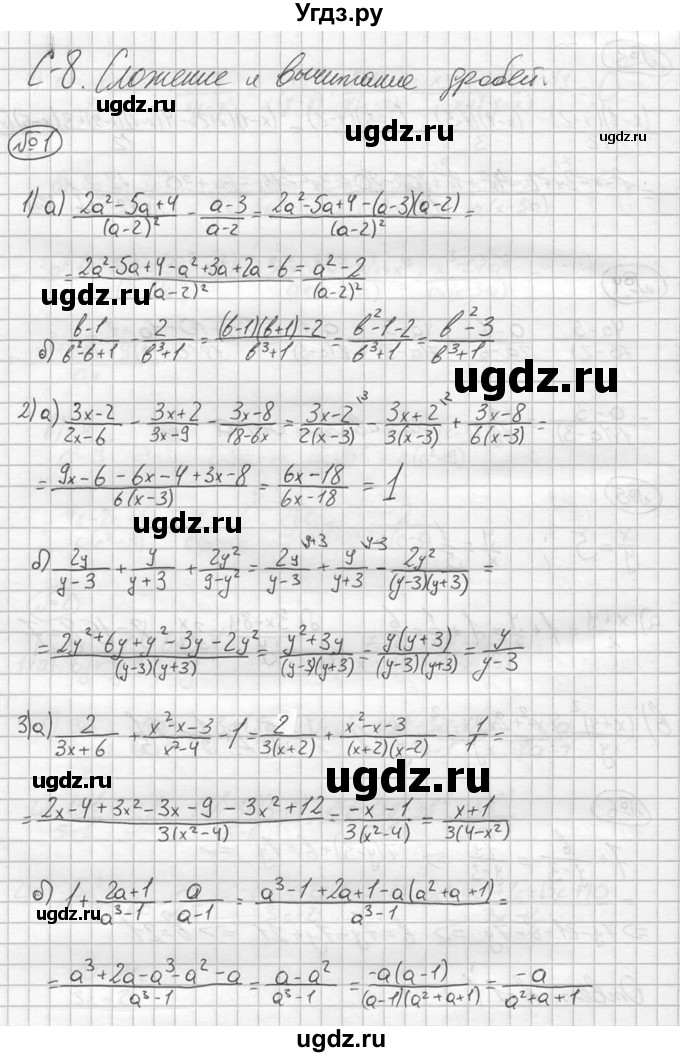 Угдз.ру
С-8. Сложение и вычитание дробей.
ugdz.ru ugdz.ru
№1
1) а) (2a²-5a+4)/(a-2)² - (a-3)/(a-2) = (2a²-5a+4-(a-3)(a-2))/(a-2)² =
= (2a²-5a+4-a²+3a+2a-6)/(a-2)² = (a²-2)/(a-2)²
ugdz.ru ugdz.ru
б) (b-1)/(b²-b+1) - 2/(b³+1) = ((b-1)(b+1)-2)/(b³+1) = (b²-1-2)/(b³+1) = (b²-3)/(b³+1)
ugdz.ru
2) а) (3x-2)/(2x-6) - (3x+2)/(3x-9) - (3x-8)/(18-6x) = (3x-2)/(2(x-3)) \3 - (3x+2)/(3(x-3)) \2 + (3x-8)/(6(x-3)) =
= (9x-6-6x-4+3x-8)/(6(x-3)) = (6x-18)/(6x-18) = 1
ugdz.ru ugdz.ru
б) 2y/(y-3) + y/(y+3) + 2y²/(9-y²) = 2y/(y-3) \y+3 + y/(y+3) \y-3 - 2y²/((y-3)(y+3)) =
= (2y²+6y+y²-3y-2y²)/((y-3)(y+3)) = (y²+3y)/((y-3)(y+3)) = y(y+3)/((y-3)(y+3)) = y/(y-3)
ugdz.ru
3) а) 2/(3x+6) + (x²-x-3)/(x²-4) - 1 = 2/(3(x+2)) + (x²-x-3)/((x+2)(x-2)) - 1/1 =
ugdz.ru ugdz.ru
= (2x-4+3x²-3x-9-3x²+12)/(3(x²-4)) = (-x-1)/(3(x²-4)) = (x+1)/(3(4-x²)
б) 1 + (2a+1)/(a³-1) - a/(a-1) = (a³-1+2a+1-a(a²+a+1))/(a³-1) =
ugdz.ru ugdz.ru
= (a³+2a-a³-a²-a)/(a³-1) = (a-a²)/(a³-1) = -a(a-1)/((a-1)(a²+a+1)) = -a/(a²+a+1)
ugdz.ru